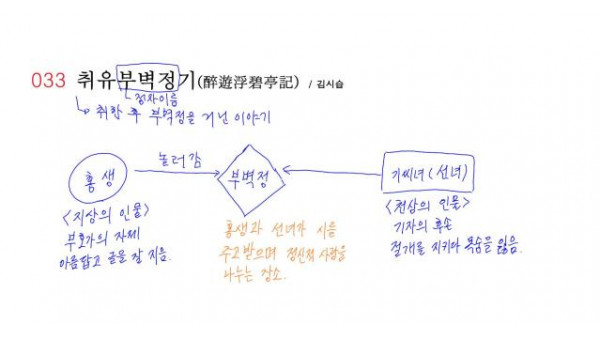 033 취유부벽정기(醉遊浮碧亭記) / 김시습
정자이름
취한 후 부벽정을 거닌 이야기
홍생
놀러감
부벽정
기씨녀(선녀)
<지상의 인물>
부호가의 자제
아름답고 글을 잘 지음.
홍생과 선녀가 시를
주고받으며 정신적 사랑을
나누는 장소.
<천상의 인물>
기자의 후손
절개를 지키다 목숨을 잃음.